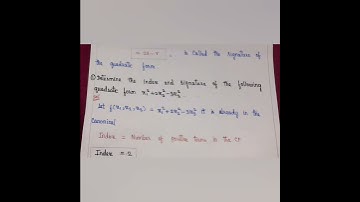 = 2s - r, is called the signature of
the quadratic form
① Determine the index and signature of the following
quadratic form x₁²+2x₂²-3x₃²
Let f(x₁,x₂,x₃) = x₁²+2x₂²-3x₃² It is already in the
canonical
Index = Number of positive terms in the CF
Index = 2